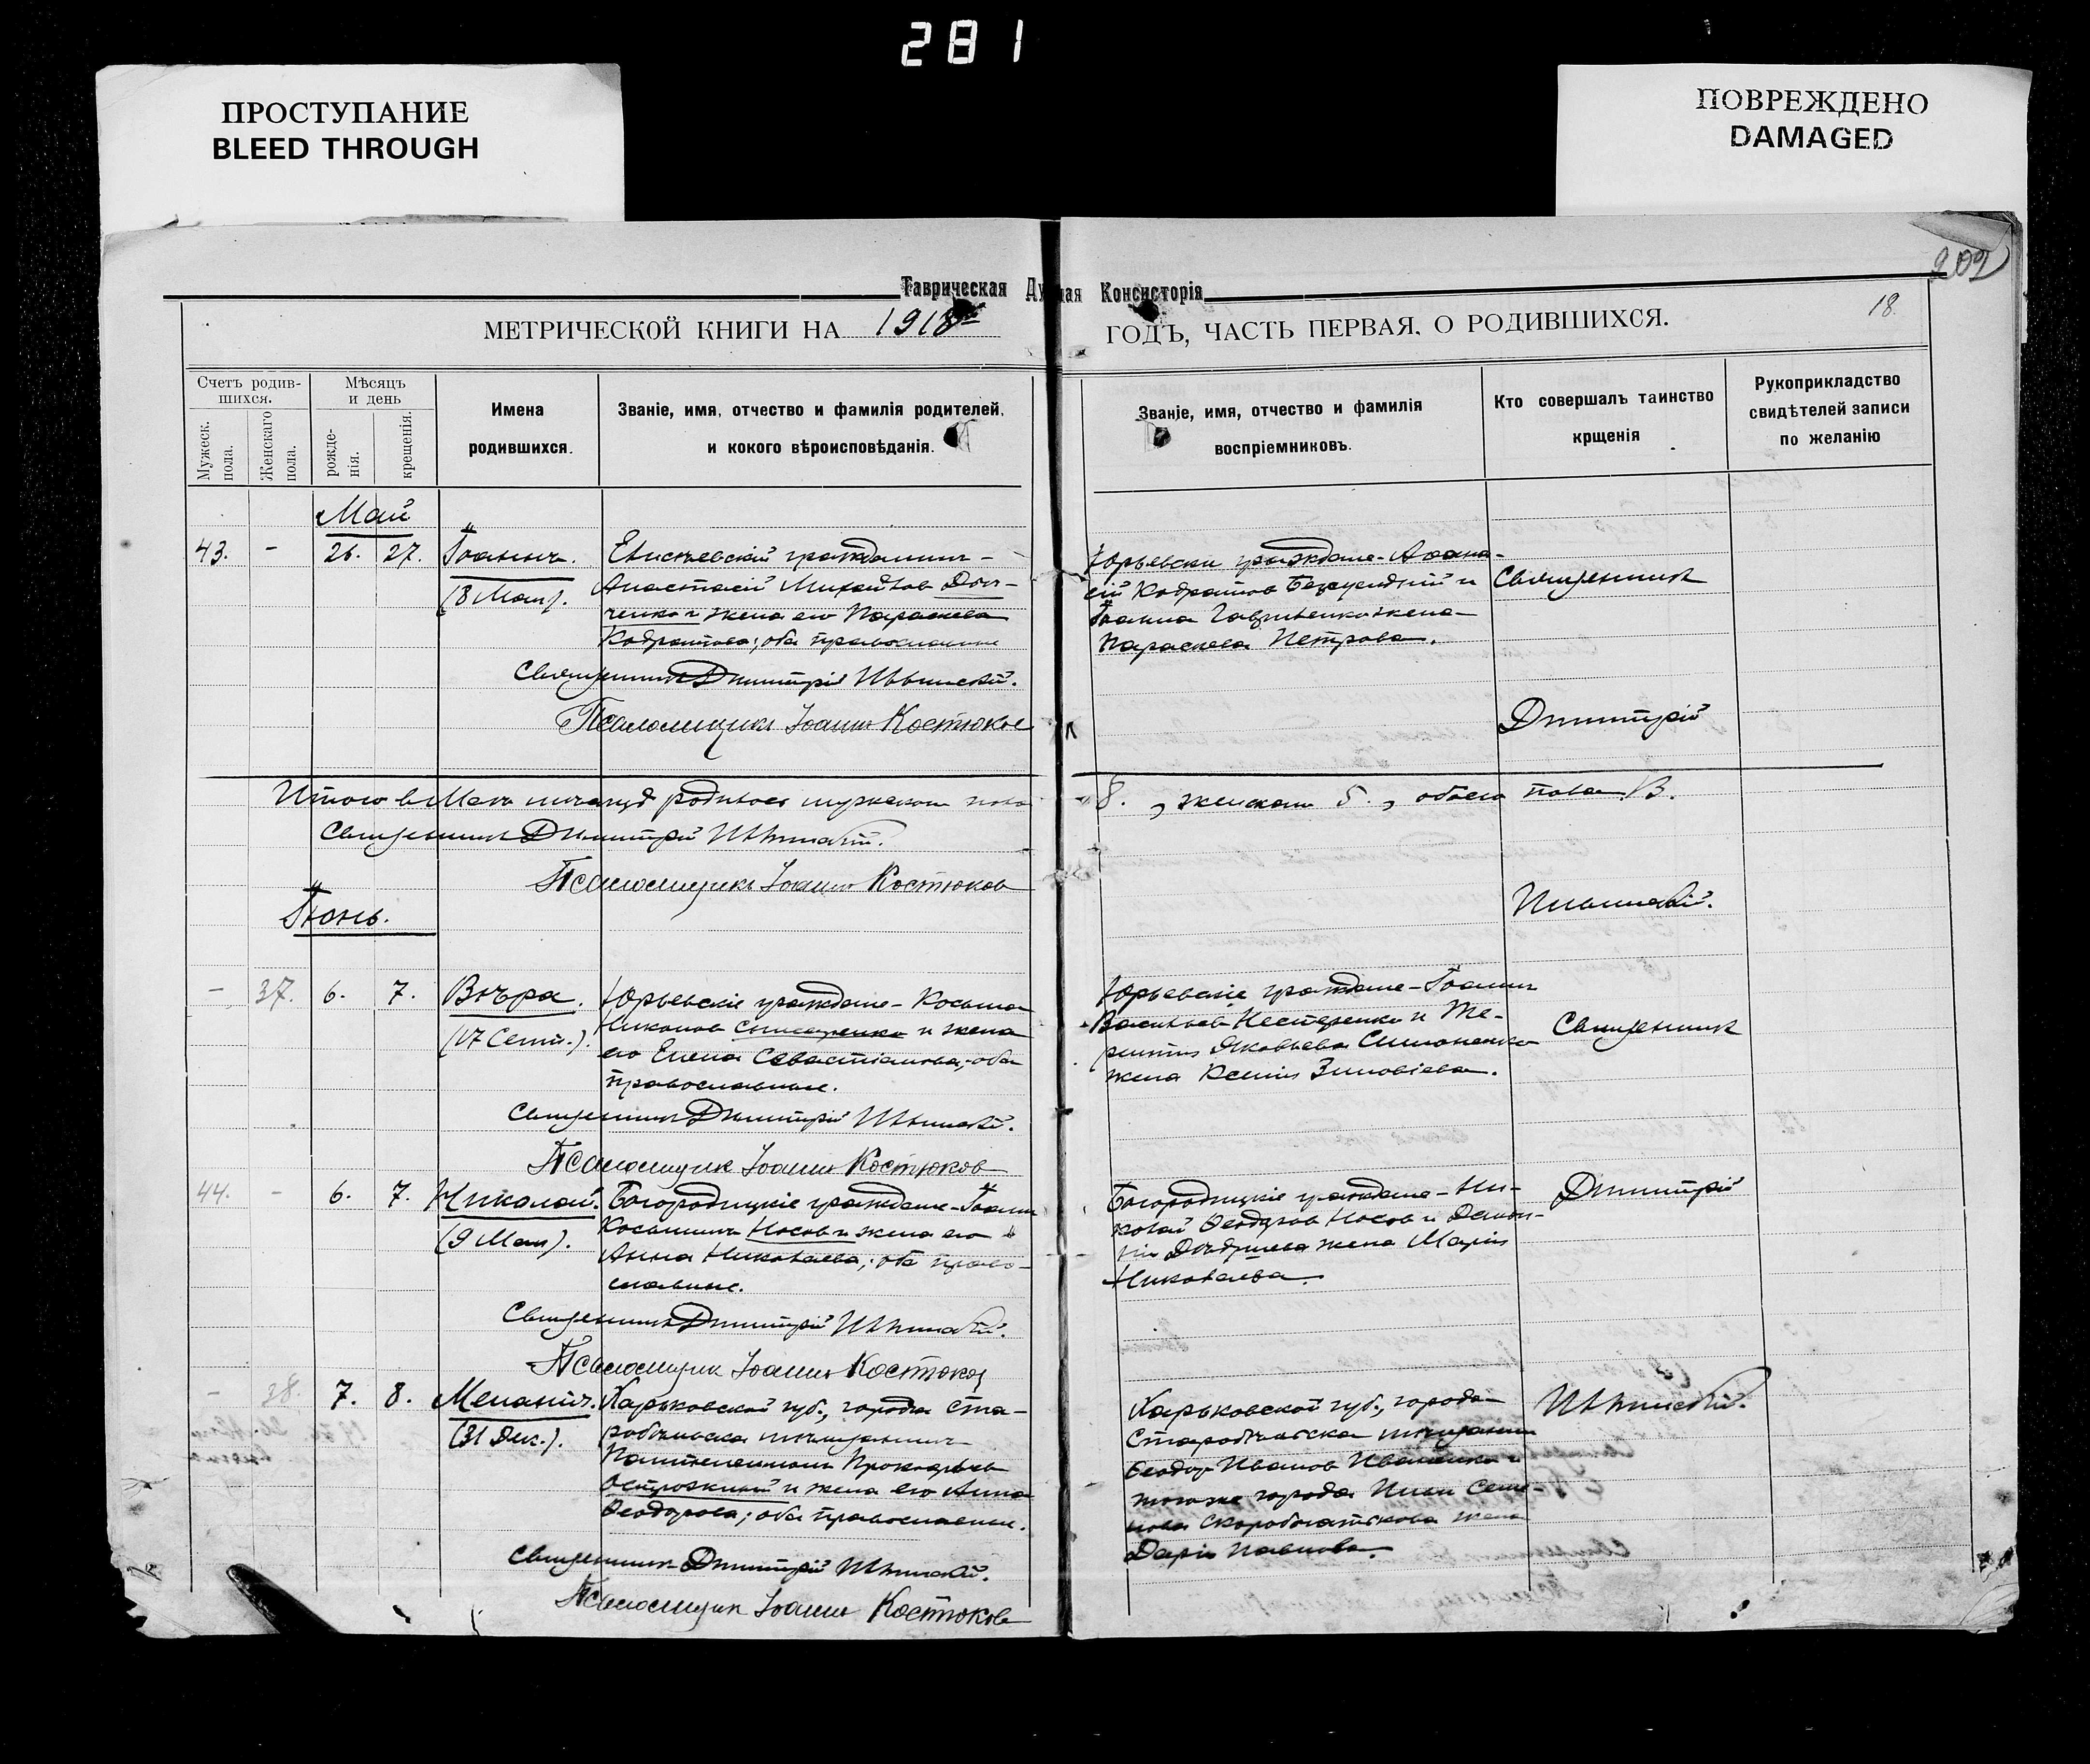 281
ПРОСТУПАНИЕ
BLEED THROUGH
ПОВРЕЖДЕНО
DAMAGED
202
Таврическая Духная Консисторія
18
МЕТРИЧЕСКОЙ КНИГИ НА 1918 ГОДЪ, ЧАСТЬ ПЕРВАЯ, О РОДИВШИХСЯ.
Счетъ родив-
шихся.
Мужеск. пола.
Женскаго пола.
Мѣсяцъ
и день
рожде-
нія.
крещенія.
Имена
родившихся.
Званіе, имя, отчество и фамилія родителей,
и кокого вѣроисповѣданія.
Званіе, имя, отчество и фамилія
воспріемниковъ.
Кто совершалъ таинство
крщенія
Рукоприкладство
свидѣтелей записи
по желанію
Май
43. - 26. 27. Іоаннъ.
(8 Мая).
гражданинъ -
Анастасій Михайлов
и жена его Параскева
Кодратова; оба православные
Священникъ Дмитрій
Псаломщикъ Іоаннъ Костюков
Юрьевски граждане - Аѳана-
сій Кодратов и
Іоанна жена
Параскева Петрова.
Священникъ
Дмитрій
Итого в Маѣ мѣсяцѣ родилось мужеского пола 8., женскаго 5., обоего пола 13.
Священникъ Дмитрій
Псаломщикъ Іоаннъ Костюков
Іюнь.
- 37. 6. 7. Вѣра.
(17 Сент.).
Юрьевскіе граждане - Косьма
Никонов и жена
его Елена Севастіанова; оба
православные.
Священникъ Дмитрій
Псаломщик Іоаннъ Костюков
Юрьевскіе граждане - Іоаннъ
Васильев Нестеренко и Те-
рентія Яковлева Симоненко
жена Ксенія Зиновіева.
Священникъ
44. - 6. 7. Николай.
(9 Мая).
Богородицкіе граждане - Іоаннъ
Косьминъ Носов и жена его
Анна Николаева; оба право-
славные.
Священникъ Дмитрій
Псаломщик Іоаннъ Костюков
Богородицкіе граждане - Ни-
колай Ѳеодоров Носов и
жена Марія
Николаева.
Дмитрій
- 38. 7. 8. Меланія.
(31 Дек.).
Харьковской губ., города Ста-
робѣльска мѣщанинъ
Пантелеимонъ Прокофьев
и жена его Анна
Ѳеодорова; оба православные.
Священникъ Дмитрій
Псаломщик Іоаннъ Костюков
Харьковской губ., города
Старобѣльска мѣщанинъ
Ѳеодор Иванов и
того же города Семе-
нова Скоробогатькова жена
Дарія Павлова.